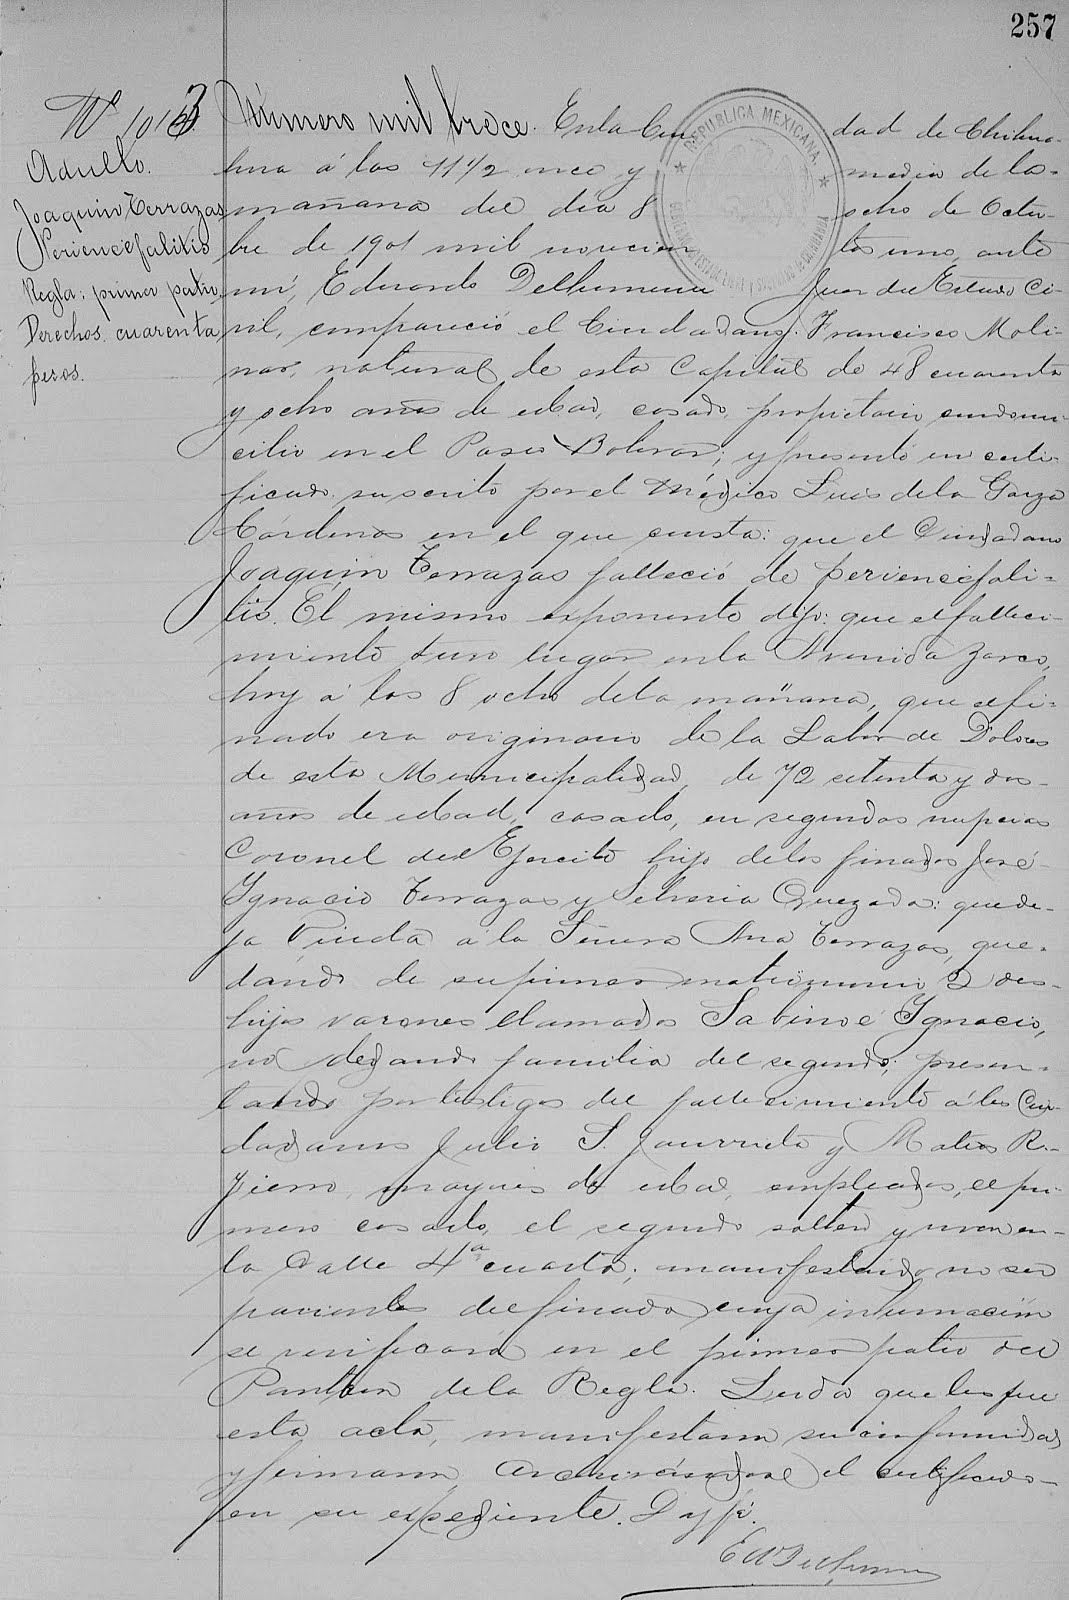 257
Nº 1013
Adulto.
Joaquin Terrazas
Periencefalitis
Regla: primer patio
Derechos cuarenta
pesos.
Número mil trece. En la Ciu dad de Chihua-
hua á las 11 1/2 once y media de la
mañana del dia 8 ocho de Octu-
bre de 1901 mil novecien tos uno, ante
mi, Eduardo Delhumeau Juez del Estado Ci-
vil, compareció el Ciudadano Francisco Moli-
nar, natural de esta Capital de 48 cuarenta
y ocho años de edad, casado, propietario con domi-
cilio en el Paseo Bolivar; y presentó un certi-
ficado suscrito por el Médico Luis de la Garza
Cárdenas en el que consta: que el Ciudadano
Joaquin Terrazas falleció de periencefali-
tis. El mismo exponente dijo: que el falleci-
miento tuvo lugar en la Avenida Zarco,
hoy á las 8 ocho de la mañana, que el fi-
nado era originario de la Labor de Dolores
de esta Municipalidad, de 72 setenta y dos
años de edad, casado, en segundas nupcias
Coronel del Ejercito hijo de los finados José
Ignacio Terrazas y Silveria Quezada: que de-
ja Viuda á la Señora Ana Terrazas, que-
dando de su primer matrimonio 2 dos
hijos varones llamados Sabino é Ignacio,
no dejando familia del segundo; presen-
tando por testigos del fallecimiento á los Ciu-
dadanos Julio S. Jaurrieta y Mateo R.
Fierro, mayores de edad, empleados, el pri-
mero casado, el segundo soltero y viven en
la Calle 4ª cuarta; manifestando no ser
parientes del finado cuya inhumación
se verificará en el primer patio del
Panteon de la Regla. Leida que les fue
esta acta, manifestaron su conformidad
y firmaron archivándose el certificado
en su expediente. Doy fé.
REPUBLICA MEXICANA
E Delhumeau